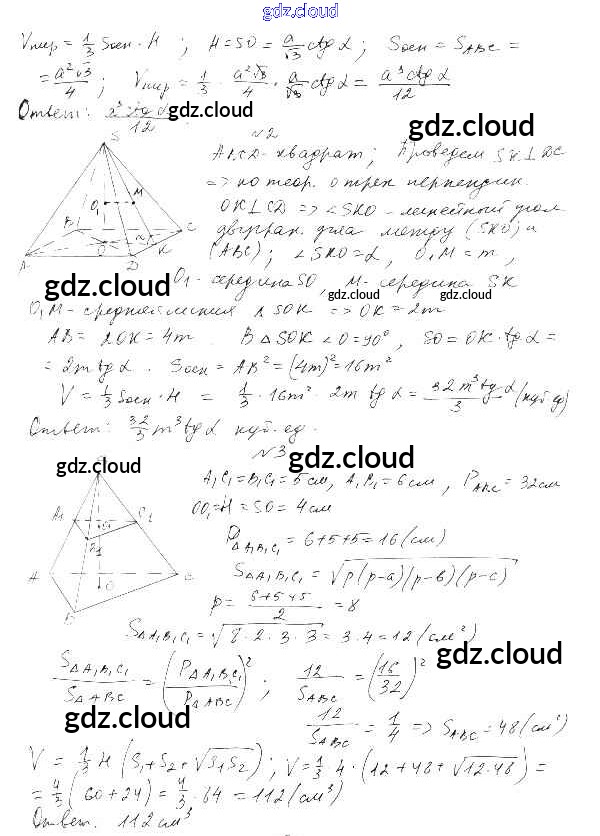 gdz.cloud
Vпир = 1/3 Sосн · H ; H = SO = a/√3 ctg α ; Sосн = S ABC =
= a²√3/4 ; Vпир = 1/3 · a²√3/4 · a/√3 ctg α = a³ctg α/12
Ответ: a³ctg α/12
gdz.cloud
№2
ABCD - квадрат; Проведем SK ⊥ DC
=> по теор. о трех перпендик.
OK ⊥ CD => ∠SKO - линейный угол
двугран. угла между (SKD) и
(ABC); ∠SKO = α, O₁M = m,
gdz.cloud
O₁ - середина SO, M - середина SK
gdz.cloud gdz.cloud
O₁M - средняя линия Δ SOK => OK = 2m
AB = 2OK = 4m. В Δ SOK ∠O = 90°, SO = OK · tg α =
= 2m tg α. Sосн = AB² = (4m)² = 16m²
V = 1/3 Sосн · H = 1/3 · 16m² · 2m tg α = 32m³tg α/3 (куб ед)
Ответ: 32/3 m³tg α куб. ед.
№3
gdz.cloud
gdz.cloud
A₁C₁ = B₁C₁ = 5 см, A₁B₁ = 6 см, P ABC = 32 см
OO₁ = H = SO = 4 см
P Δ A₁B₁C₁ = 6+5+5 = 16 (см)
S Δ A₁B₁C₁ = √p(p-a)(p-b)(p-c)
p = 6+5+5/2 = 8
S Δ A₁B₁C₁ = √8 · 2 · 3 · 3 = 3 · 4 = 12 (см²)
gdz.cloud
S Δ A₁B₁C₁/S Δ ABC = (P Δ A₁B₁C₁/P Δ ABC)² ; 12/S ABC = (16/32)²
gdz.cloud
12/S ABC = 1/4 => S ABC = 48 (см²)
V = 1/3 H (S₁+S₂+√S₁S₂) ; V = 1/3 · 4 · (12+48+√12·48) =
= 4/3 (60+24) = 4/3 · 84 = 112 (см³)
Ответ. 112 см³